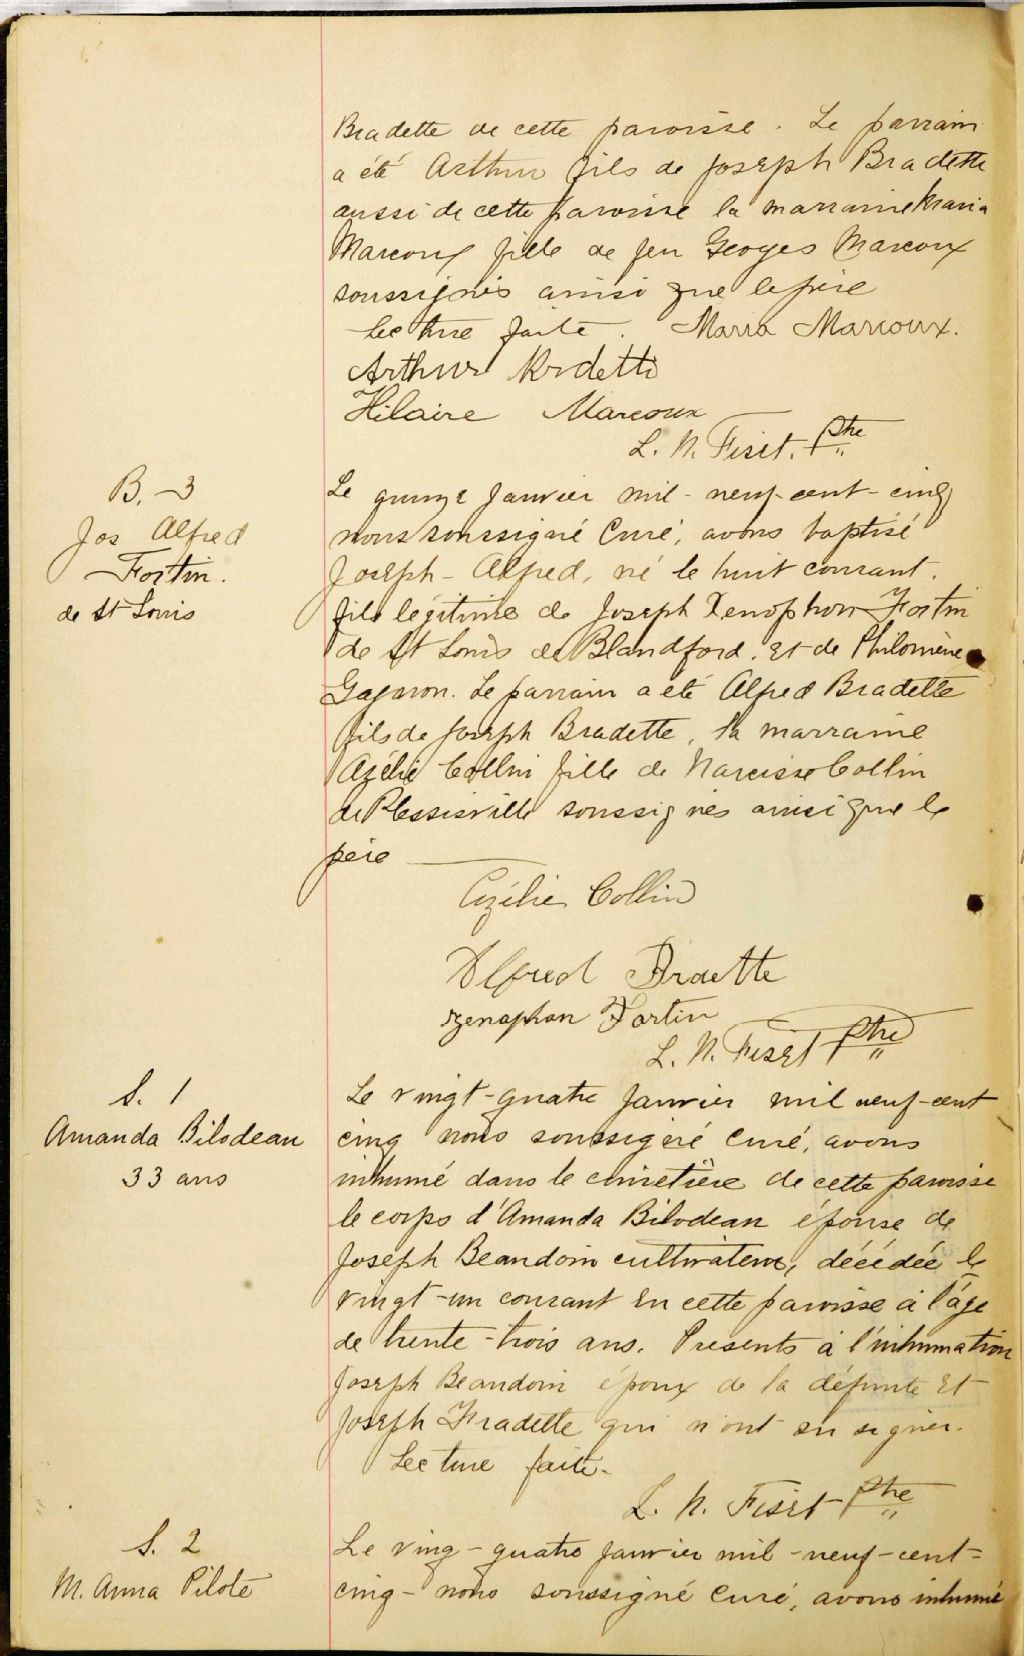 Bradette de cette paroisse. Le parrain
a été Arthur fils de Joseph Bradette
aussi de cette paroisse la marraine Maria
Marcoux fille de feu Georges Marcoux
soussignés ainsi que le père
Lecture faite. Maria Marcoux.
Arthur Brdette
Hilaire Marcoux
L. N. Fiset. Ptre
B. - 3
Jos Alfred
Fortin.
de St Louis
Le quinze Janvier mil-neuf-cent-cinq
nous soussigné Curé, avons baptisé
Joseph-Alfred, né le huit courant.
fils légitime de Joseph Xenophon Fortin
de St Louis de Blandford. et de Philomène
Gagnon. Le parrain a été Alfred Bradette
fils de Joseph Bradette, la marraine
Azélie Collin fille de Narcisse Collin
de Plessisville soussignés ainsi que le
père
Azélie Collin
Alfred Bradette
Zenophon Fortin
L. N. Fiset Ptre
S. 1
Amanda Bilodeau
33 ans
Le vingt-quatre Janvier mil neuf-cent
cinq nous soussigné Curé, avons
inhumé dans le cimetière de cette paroisse
le corps d'Amanda Bilodeau épouse de
Joseph Beaudoin cultivateur, décédée le
vingt-un courant en cette paroisse à l'âge
de trente-trois ans. Presents à l'inhumation
Joseph Beaudoin époux de la défunte et
Joseph Fradette qui n'ont su signer.
Lecture faite.
L. N. Fiset Ptre
S. 2
M. Anna Pilote
Le ving-quatre Janvier mil-neuf-cent-
cinq- nous soussigné Curé, avons inhumé